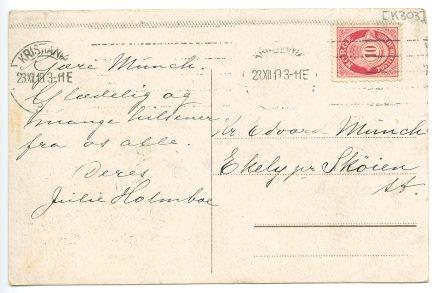 [K303]
KRISTIANIA
23 XII 19 3-4 E
NORGE
10
Kjære Munch.
Glædelig og
mange hilsener
fra os alle.
Deres
Julie Holmboe
Hr Edvard Munch
Ekely pr Skøien
St.